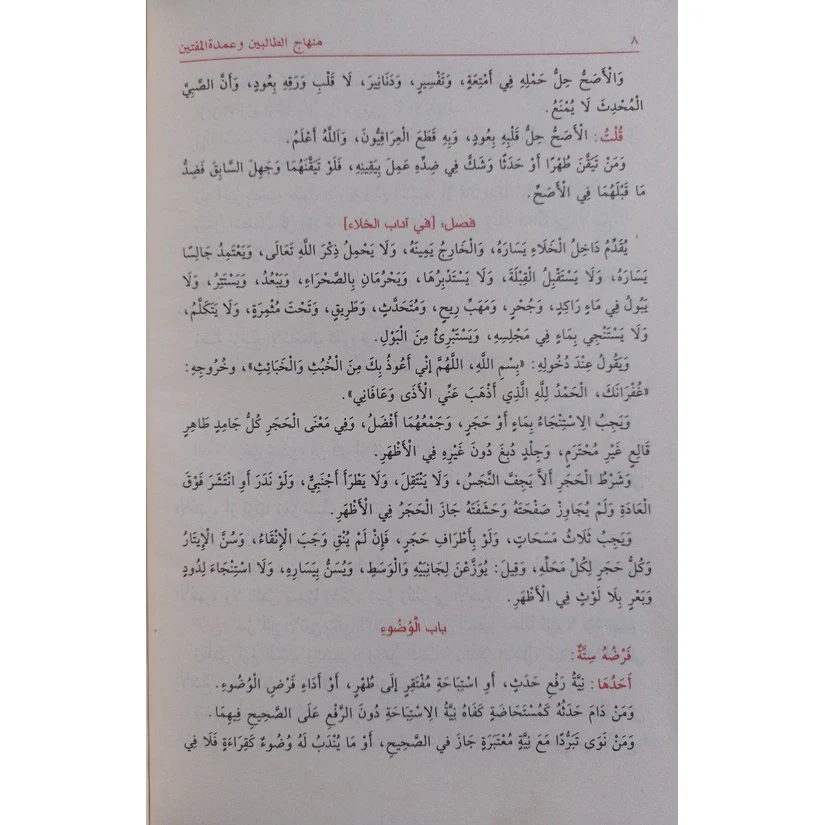 ٨ منهاج الطالبين وعمدة المفتين
وَالْأَصَحُّ حِلُّ حَمْلِهِ فِي أَمْتِعَةٍ، وَتَفْسِيرٍ، وَدَنَانِيرَ، لَا قَلْبِ وَرَقِهِ بِعُودٍ، وَأَنَّ الصَّبِيَّ
الْمُحْدِثَ لَا يُمْنَعُ.
قُلْتُ: الْأَصَحُّ حِلُّ قَلْبِهِ بِعُودٍ، وَبِهِ قَطَعَ الْعِرَاقِيُّونَ، وَاللَّهُ أَعْلَمُ.
وَمَنْ تَيَقَّنَ طُهْرًا أَوْ حَدَثًا وَشَكَّ فِي ضِدِّهِ عَمِلَ بِيَقِينِهِ، فَلَوْ تَيَقَّنَهُمَا وَجَهِلَ السَّابِقَ فَضِدُّ
مَا قَبْلَهُمَا فِي الْأَصَحِّ.
فصل: [في آداب الخلاء]
يُقَدِّمُ دَاخِلُ الْخَلَاءِ يَسَارَهُ، وَالْخَارِجُ يَمِينَهُ، وَلَا يَحْمِلُ ذِكْرَ اللَّهِ تَعَالَى، وَيَعْتَمِدُ جَالِسًا
يَسَارَهُ، وَلَا يَسْتَقْبِلُ الْقِبْلَةَ، وَلَا يَسْتَدْبِرُهَا، وَيَحْرُمَانِ بِالصَّحْرَاءِ، وَيَبْعُدُ، وَيَسْتَتِرُ، وَلَا
يَبُولُ فِي مَاءٍ رَاكِدٍ، وَجُحْرٍ، وَمَهَبِّ رِيحٍ، وَمُتَحَدَّثٍ، وَطَرِيقٍ، وَتَحْتَ مُثْمِرَةٍ، وَلَا يَتَكَلَّمُ،
وَلَا يَسْتَنْجِي بِمَاءٍ فِي مَجْلِسِهِ، وَيَسْتَبْرِئُ مِنَ الْبَوْلِ.
وَيَقُولُ عِنْدَ دُخُولِهِ: «بِسْمِ اللَّهِ، اللَّهُمَّ إِنِّي أَعُوذُ بِكَ مِنَ الْخُبُثِ وَالْخَبَائِثِ»، وَخُرُوجِهِ:
«غُفْرَانَكَ، الْحَمْدُ لِلَّهِ الَّذِي أَذْهَبَ عَنِّي الْأَذَى وَعَافَانِي».
وَيَجِبُ الِاسْتِنْجَاءُ بِمَاءٍ أَوْ حَجَرٍ، وَجَمْعُهُمَا أَفْضَلُ، وَفِي مَعْنَى الْحَجَرِ كُلُّ جَامِدٍ طَاهِرٍ
قَالِعٍ غَيْرِ مُحْتَرَمٍ، وَجِلْدٍ دُبِغَ دُونَ غَيْرِهِ فِي الْأَظْهَرِ.
وَشَرْطُ الْحَجَرِ أَلَّا يَجِفَّ النَّجَسُ، وَلَا يَنْتَقِلَ، وَلَا يَطْرَأَ أَجْنَبِيٌّ، وَلَوْ نَدَرَ أَوِ انْتَشَرَ فَوْقَ
الْعَادَةِ وَلَمْ يُجَاوِزْ صَفْحَتَهُ وَحَشَفَتَهُ جَازَ الْحَجَرُ فِي الْأَظْهَرِ.
وَيَجِبُ ثَلَاثُ مَسَحَاتٍ، وَلَوْ بِأَطْرَافِ حَجَرٍ، فَإِنْ لَمْ يُنْقِ وَجَبَ الْإِنْقَاءُ، وَسُنَّ الْإِيتَارُ
وَكُلُّ حَجَرٍ لِكُلِّ مَحَلِّهِ، وَقِيلَ: يُوَزَّعْنَ لِجَانِبَيْهِ وَالْوَسَطِ، وَيُسَنُّ بِيَسَارِهِ، وَلَا اسْتِنْجَاءَ لِدُودٍ
وَبَعْرٍ بِلَا لَوْثٍ فِي الْأَظْهَرِ.
باب الْوُضُوءِ
فَرْضُهُ سِتَّةٌ:
أَحَدُهَا: نِيَّةُ رَفْعِ حَدَثٍ، أَوِ اسْتِبَاحَةِ مُفْتَقِرٍ إِلَى طُهْرٍ، أَوْ أَدَاءِ فَرْضِ الْوُضُوءِ.
وَمَنْ دَامَ حَدَثُهُ كَمُسْتَحَاضَةٍ كَفَاهُ نِيَّةُ الِاسْتِبَاحَةِ دُونَ الرَّفْعِ عَلَى الصَّحِيحِ فِيهِمَا.
وَمَنْ نَوَى تَبَرُّدًا مَعَ نِيَّةٍ مُعْتَبَرَةٍ جَازَ في الصَّحِيحِ، أَوْ مَا يُنْدَبُ لَهُ وُضُوءٌ كَقِرَاءَةٍ فَلَا فِي